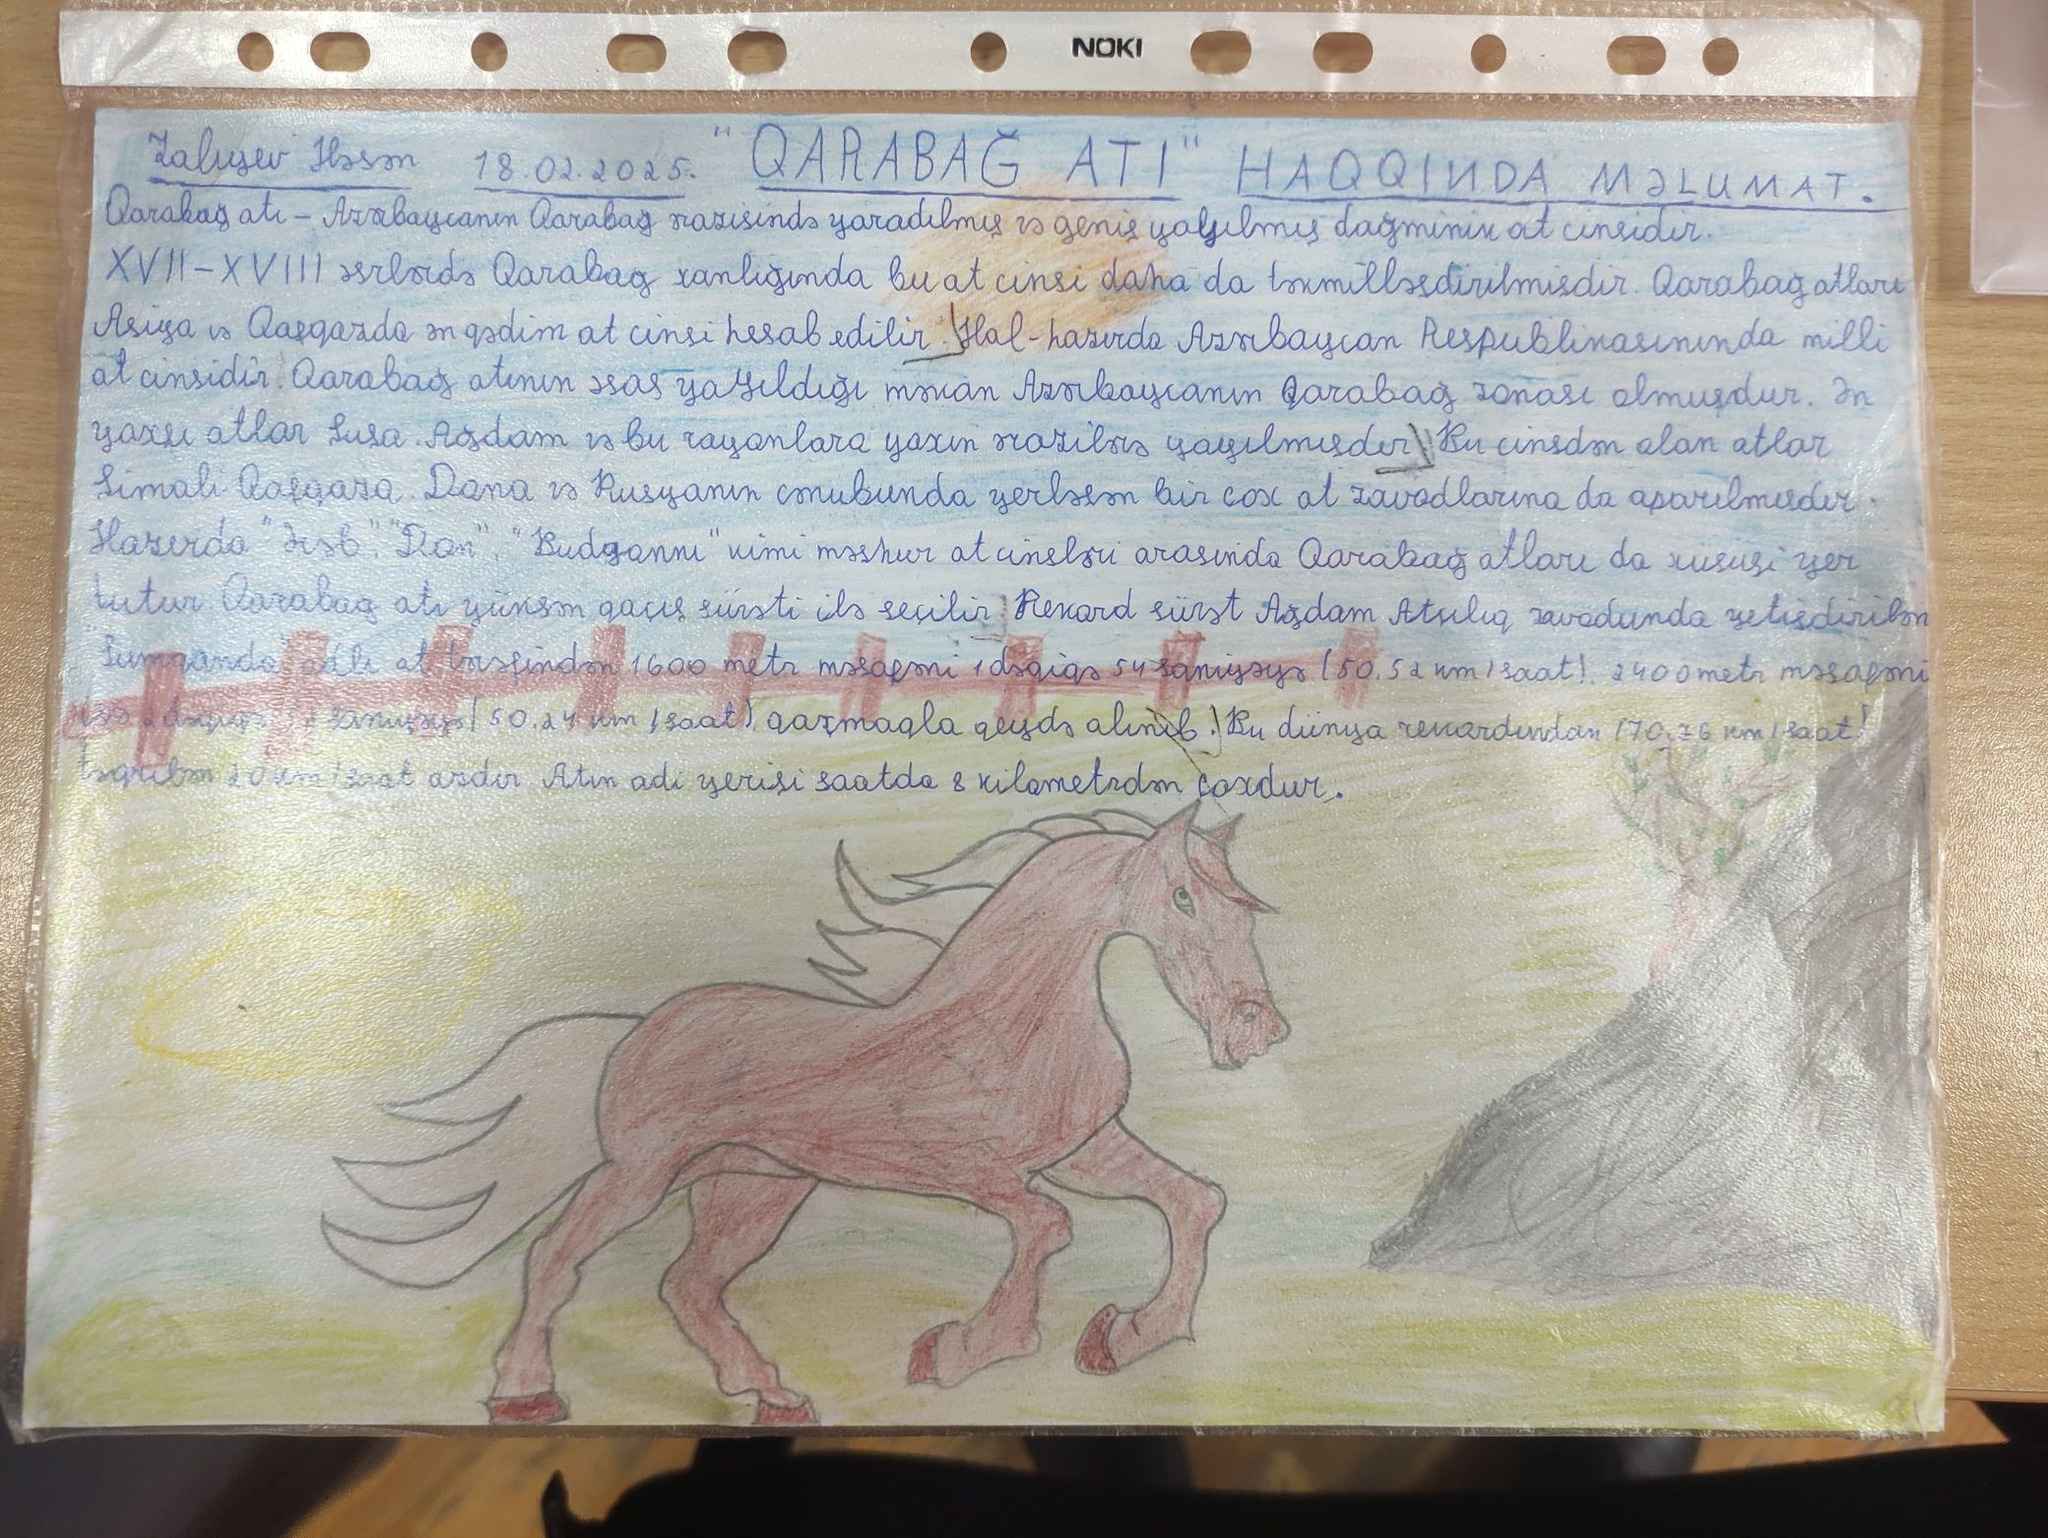 NOKI
Zalıyev Həsən 18.02.2025. "QARABAĞ ATI" HAQQINDA MƏLUMAT.
Qarabağ atı – Azərbaycanın Qarabağ ərazisində yaradılmış və geniş yayılmış dağminik at cinsidir.
XVII–XVIII əsrlərdə Qarabağ xanlığında bu at cinsi daha da təkmilləşdirilmişdir. Qarabağ atları
Asiya və Qafqazda ən qədim at cinsi hesab edilir. Hal-hazırda Azərbaycan Respublikasınında milli
at cinsidir. Qarabağ atının əsas yayıldığı məkan Azərbaycanın Qarabağ zonası olmuşdur. Ən
yaxşı atlar Şuşa. Ağdam və bu rayonlara yaxın ərazilərə yayılmışdır. Bu cinsdən olan atlar
Şimali Qafqaza. Dona və Rusyanın cənubunda yerləşən bir çox at zavodlarına da aparılmışdır.
Hazırda "Ərəb", "Don", "Budyonnı" kimi məşhur at cinsləri arasında Qarabağ atları da xüsusi yer
tutur. Qarabağ atı yüksən qaçış sürəti ilə seçilir. Rekord sürət Ağdam Atçılıq zavodunda yetişdirilən
adlı at tərəfindən 1600 metr məsafəni 1 dəqiqə 54 saniyəyə (50.52 km/saat). 2400 metr məsafəni
isə 2 dəqiqə saniyəyə (50.24 km/saat) qaçmaqla qeydə alınıb. Bu dünya rekordundan (70.76 km/saat)
təqribən 20 km/saat azdır. Atın adi yerişi saatda 8 kilometrdən çoxdur.